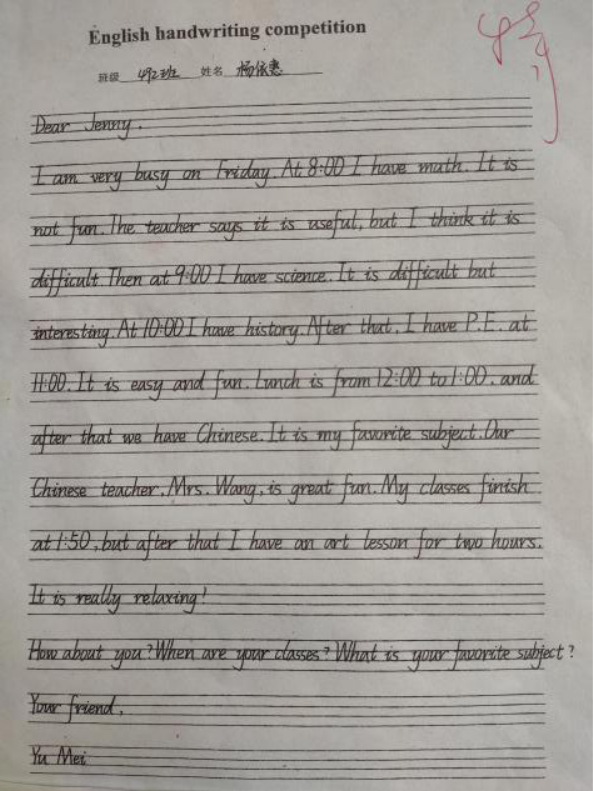 English handwriting competition
班级 492班 姓名 杨依惠
Dear Jenny,
I am very busy on Friday. At 8:00 I have math. It is
not fun. The teacher says it is useful, but I think it is
difficult. Then at 9:00 I have science. It is difficult but
interesting. At 10:00 I have history. After that, I have P.E. at
11:00. It is easy and fun. Lunch is from 12:00 to 1:00, and
after that we have Chinese. It is my favorite subject. Our
Chinese teacher, Mrs. Wang, is great fun. My classes finish
at 1:50, but after that I have an art lesson for two hours.
It is really relaxing!
How about you? When are your classes? What is your favorite subject?
Your friend,
Yu Mei